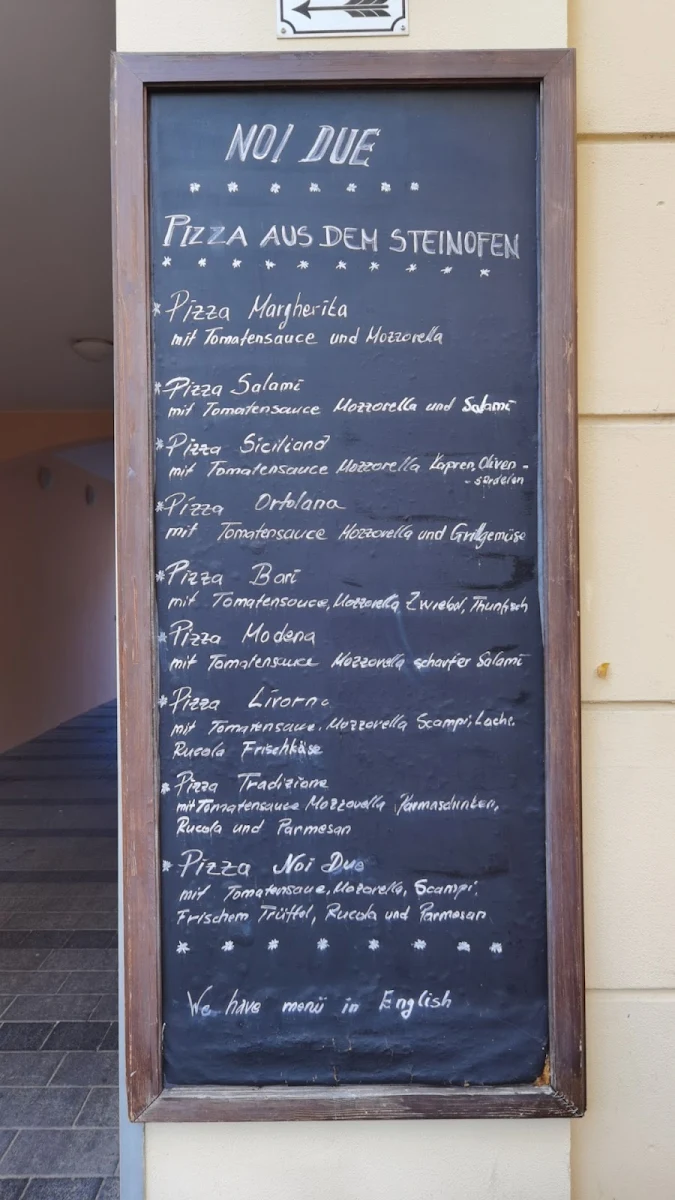 NOI DUE
PIZZA AUS DEM STEINOFEN
Pizza Margherita
mit Tomatensauce und Mozzorella
Pizza Salami
mit Tomatensauce Mozzorella und Salami
Pizza Siciliana
mit Tomatensauce Mozzorella Kapren, Oliven -
- sardelen
Pizza Ortolana
mit Tomatensauce Mozzorella und Grillgemüse
Pizza Bari
mit Tomatensouce, Mozzorella Zwiebel, Thunfisch
Pizza Modena
mit Tomatensauce Mozzorella scharfer Salami
Pizza Livorno
mit Tomatensaue, Mozzorella Scampi, Lachs,
Rucola Frischkäse
Pizza Tradizione
mit Tomatensauce Mozzorella Parmaschinken,
Rucola und Parmesan
Pizza Noi Due
mit Tomatensaue, Mozorella, Scampi,
Frischem Trüffel, Rucola und Parmesan
We have menü in English